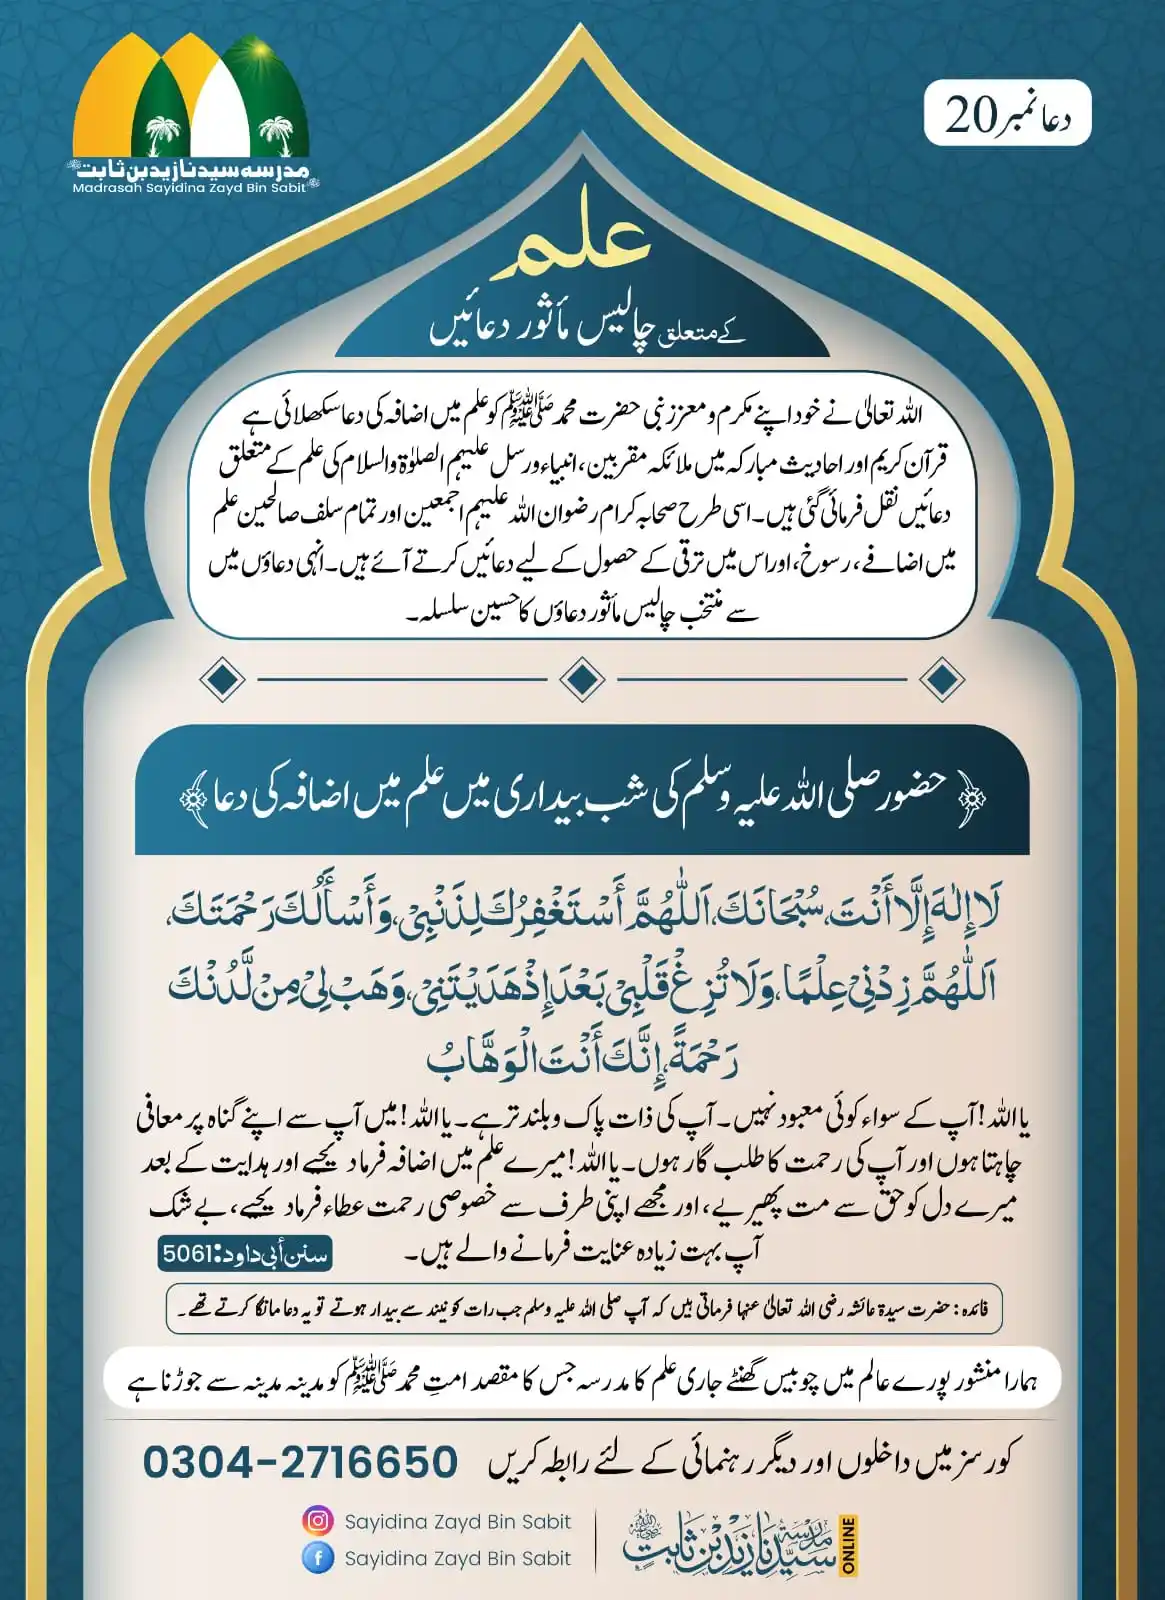 مدرسه سیدنا زید بن ثابت
Madrasah Sayidina Zayd Bin Sabit
دعا نمبر 20
علم
کے متعلق چالیس مأثور دعائیں
اللہ تعالیٰ نے خود اپنے مکرم و معزز نبی حضرت محمد ﷺ کو علم میں اضافہ کی دعا سکھلائی ہے
قرآن کریم اور احادیث مبارکہ میں ملائکہ مقربین، انبیاء ورسل علیہم الصلوٰة والسلام کی علم کے متعلق
دعائیں نقل فرمائی گئی ہیں۔ اسی طرح صحابہ کرام رضوان اللہ علیہم اجمعین اور تمام سلف صالحین علم
میں اضافے، رسوخ، اور اس میں ترقی کے حصول کے لیے دعائیں کرتے آئے ہیں۔ انہی دعاؤں میں
سے منتخب چالیس مأثور دعاؤں کا حسین سلسلہ۔
حضور صلی اللہ علیہ وسلم کی شب بیداری میں علم میں اضافہ کی دعا
لَا إِلٰهَ إِلَّا أَنْتَ، سُبْحَانَكَ، اَللّٰهُمَّ أَسْتَغْفِرُكَ لِذَنْبِيْ، وَأَسْأَلُكَ رَحْمَتَكَ،
اَللّٰهُمَّ زِدْنِيْ عِلْمًا، وَلَا تُزِغْ قَلْبِيْ بَعْدَ إِذْ هَدَيْتَنِيْ، وَهَبْ لِيْ مِنْ لَّدُنْكَ
رَحْمَةً، إِنَّكَ أَنْتَ الْوَهَّابُ
یا اللہ! آپ کے سواء کوئی معبود نہیں۔ آپ کی ذات پاک و بلند تر ہے۔ یا اللہ! میں آپ سے اپنے گناہ پر معافی
چاہتا ہوں اور آپ کی رحمت کا طلب گار ہوں۔ یا اللہ! میرے علم میں اضافہ فرما دیجیے اور ہدایت کے بعد
میرے دل کو حق سے مت پھیریے، اور مجھے اپنی طرف سے خصوصی رحمت عطاء فرما دیجیے، بے شک
آپ بہت زیادہ عنایت فرمانے والے ہیں۔
سنن أبی داود: 5061
فائدہ: حضرت سیدة عائشہ رضی اللہ تعالیٰ عنہا فرماتی ہیں کہ آپ صلی اللہ علیہ وسلم جب رات کو نیند سے بیدار ہوتے تو یہ دعا مانگا کرتے تھے۔
ہمارا منشور پورے عالم میں چوبیس گھنٹے جاری علم کا مدرسہ جس کا مقصد امتِ محمد ﷺ کو مدینہ مدینہ سے جوڑنا ہے
کورسز میں داخلوں اور دیگر رہنمائی کے لئے رابطہ کریں 0304-2716650
Sayidina Zayd Bin Sabit
Sayidina Zayd Bin Sabit
مدرسة سیدنا زید بن ثابت
ONLINE